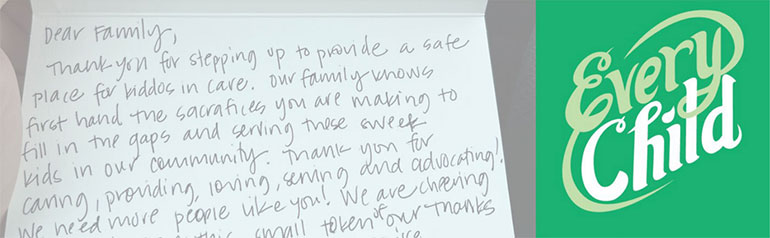 Dear Family,
Thank you for stepping up to provide a safe
place for kiddos in care. Our family knows
first hand the sacrafices you are making to
fill in the gaps and serving these sweet
kids in our community. Thank you for
caring, providing, loving, serving and advocating!
We need more people like you! We are cheering
this small token of our thanks
Every
Child